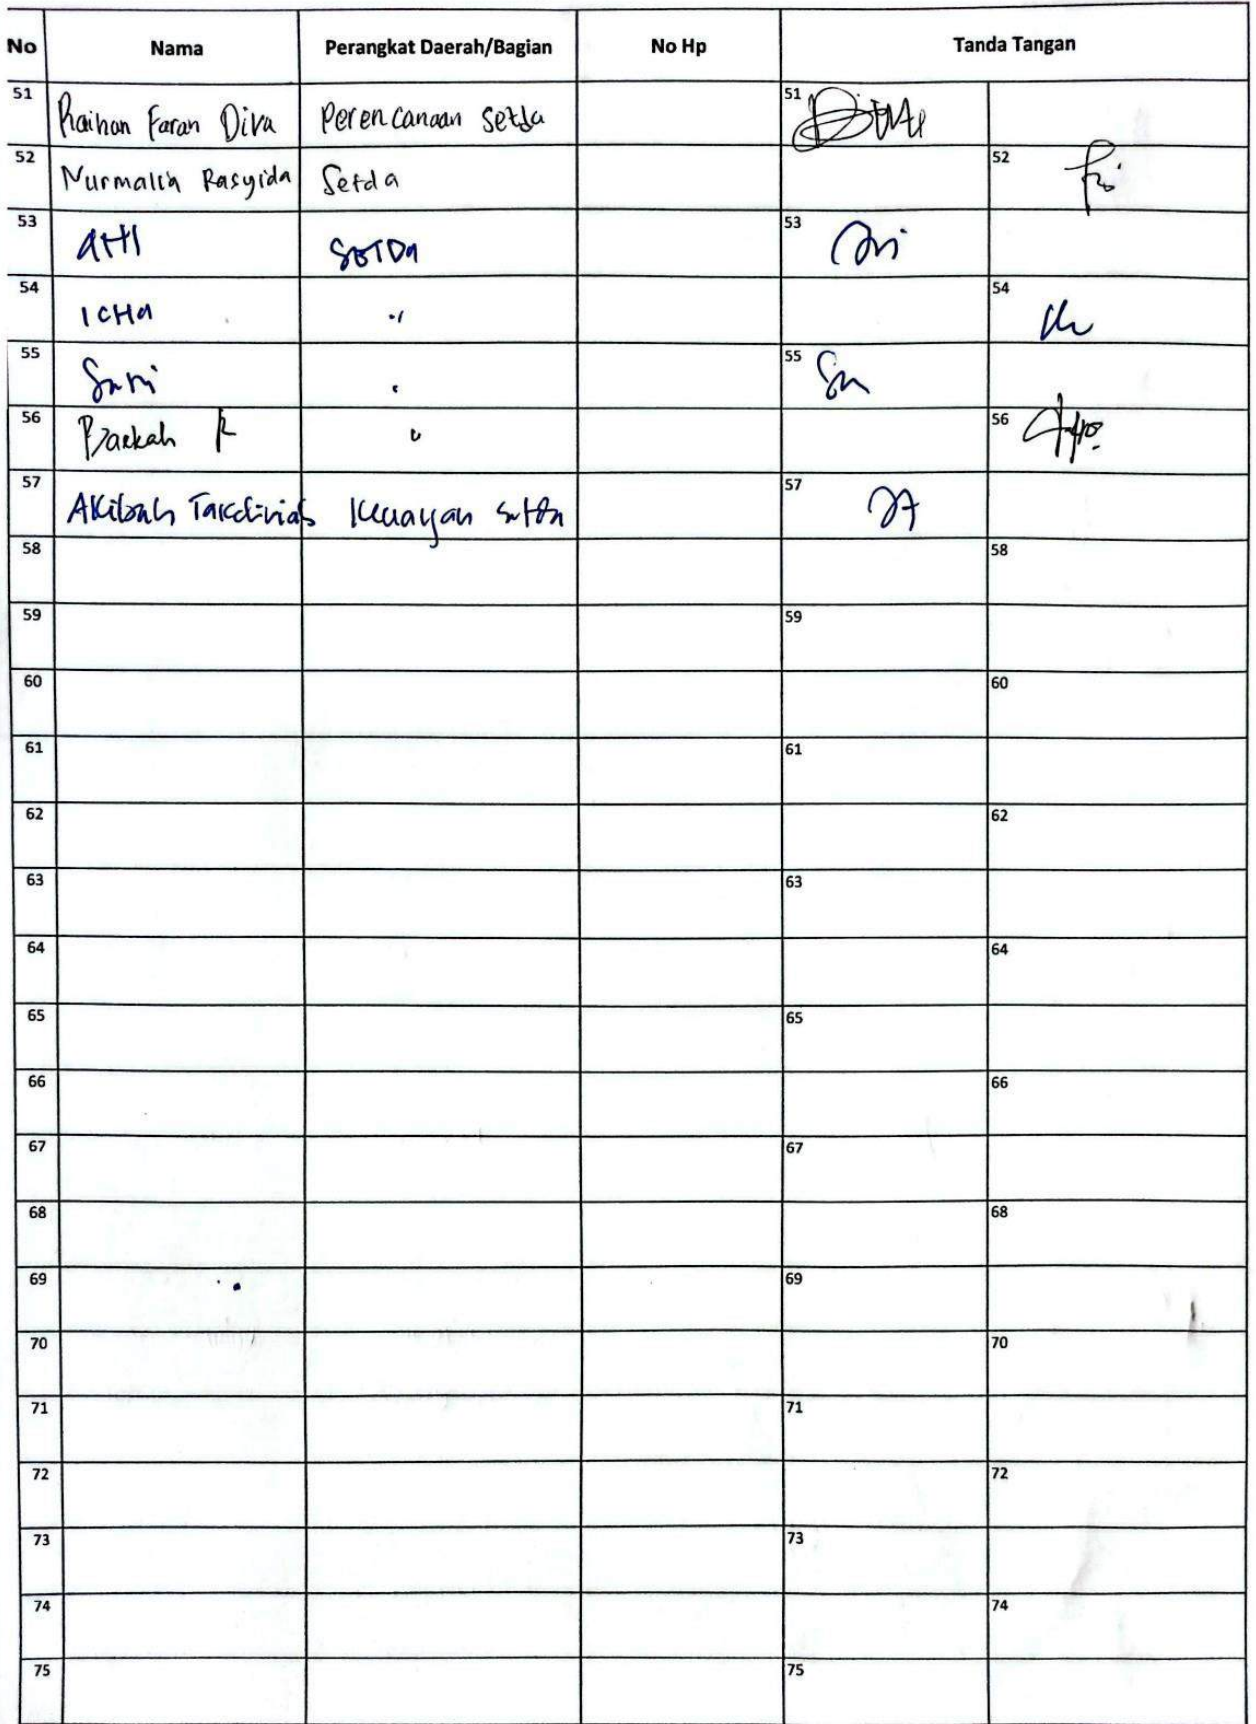 No Nama Perangkat Daerah/Bagian No Hp Tanda Tangan
51 Raihan Faran Diva Perencanaan Setda 51
52 Nurmalia Rasyida Setda 52
53 SETDA 53
54 ICHA 54
55 Sari 55
56 Barkah R 56
57 Akibah 57
58 58
59 59
60 60
61 61
62 62
63 63
64 64
65 65
66 66
67 67
68 68
69 69
70 70
71 71
72 72
73 73
74 74
75 75